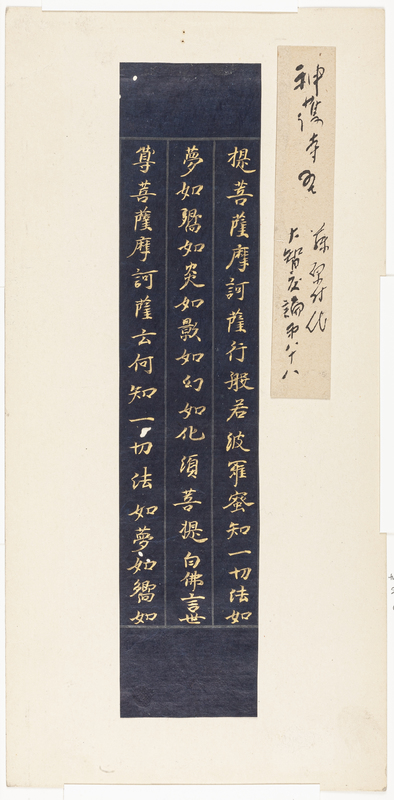 神護寺
藤原時代
大智度論第八十八
提菩薩摩訶薩行般若波羅蜜知一切法如
夢如響如炎如影如幻如化須菩提白佛言世
尊菩薩摩訶薩云何知一切法如夢如響如